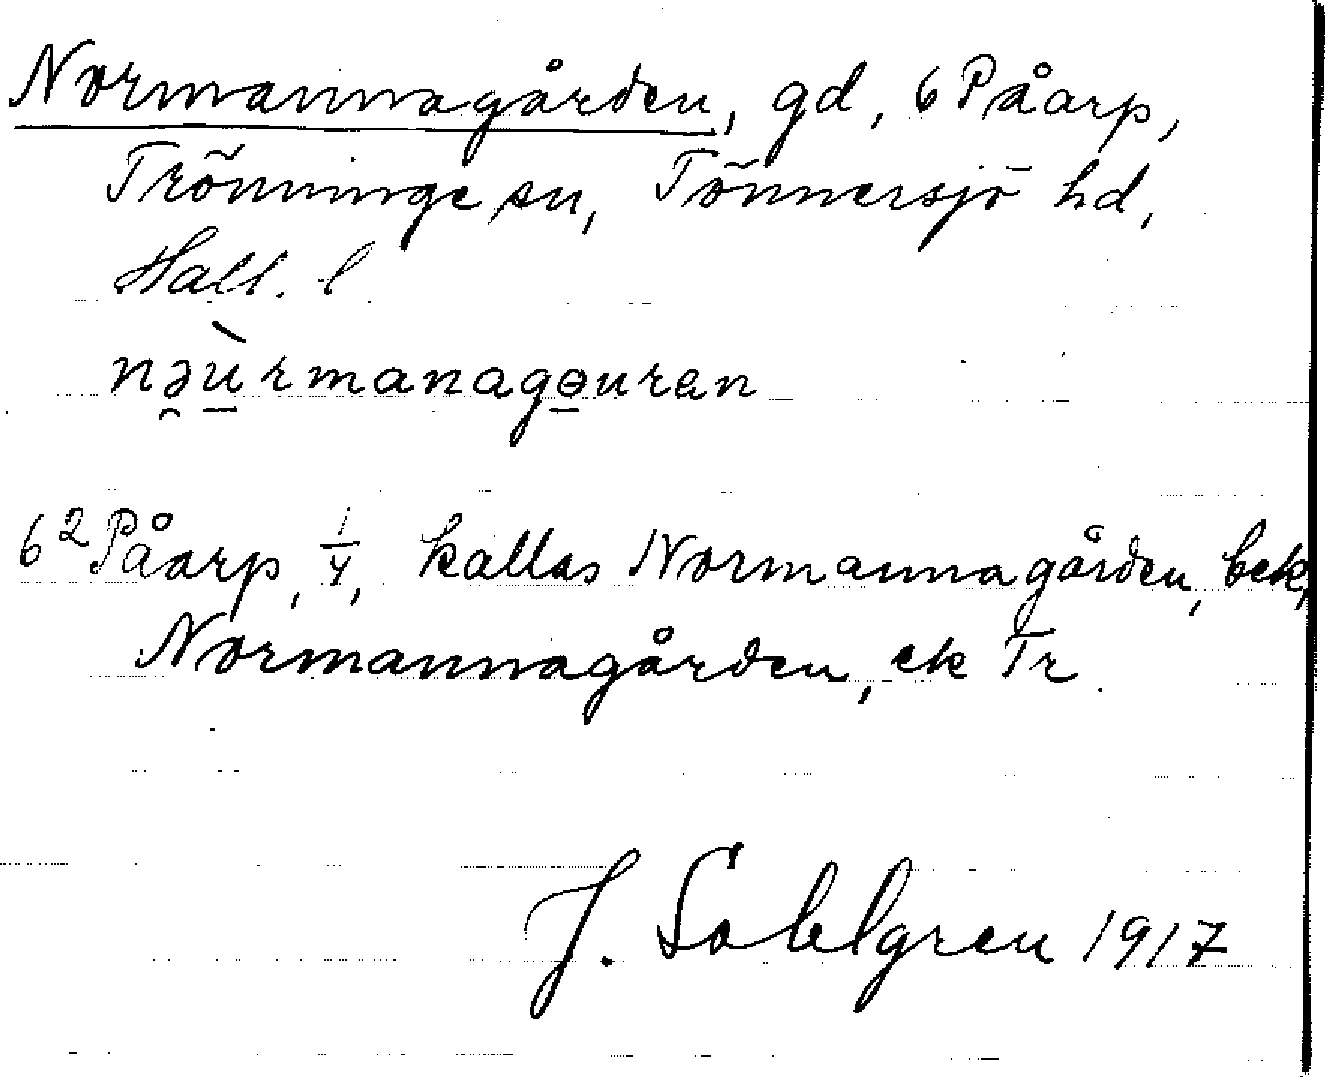 Normannagården, gd, 6 Påarp,
Trönninge sn, Tönnersjö hd,
Hall. l
nə̯ù̠rmanagɵ̠uren
6² Påarp, 1/4, kallas Normannagården, bek,
Normannagården, ek Tr.
J. Sahlgren 1917